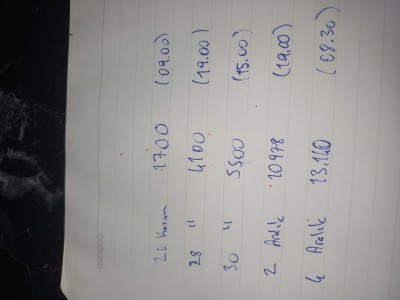 26 Kasım 1700 (09.00)
28 " 4100 (19.00)
30 " 5500 (15.00)
2 Aralık 10978 (19.00)
4 Aralık 13,140 (08.30)